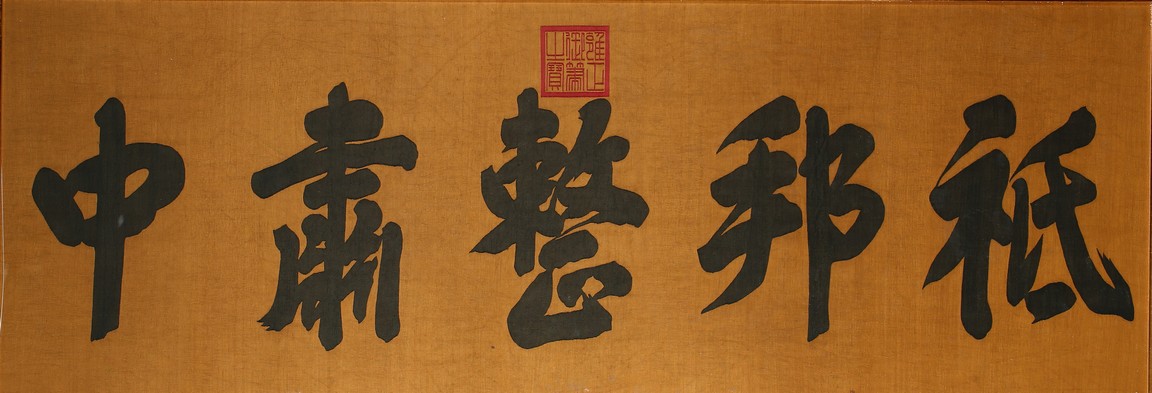 祗邦整肅中
雍正御筆之寶